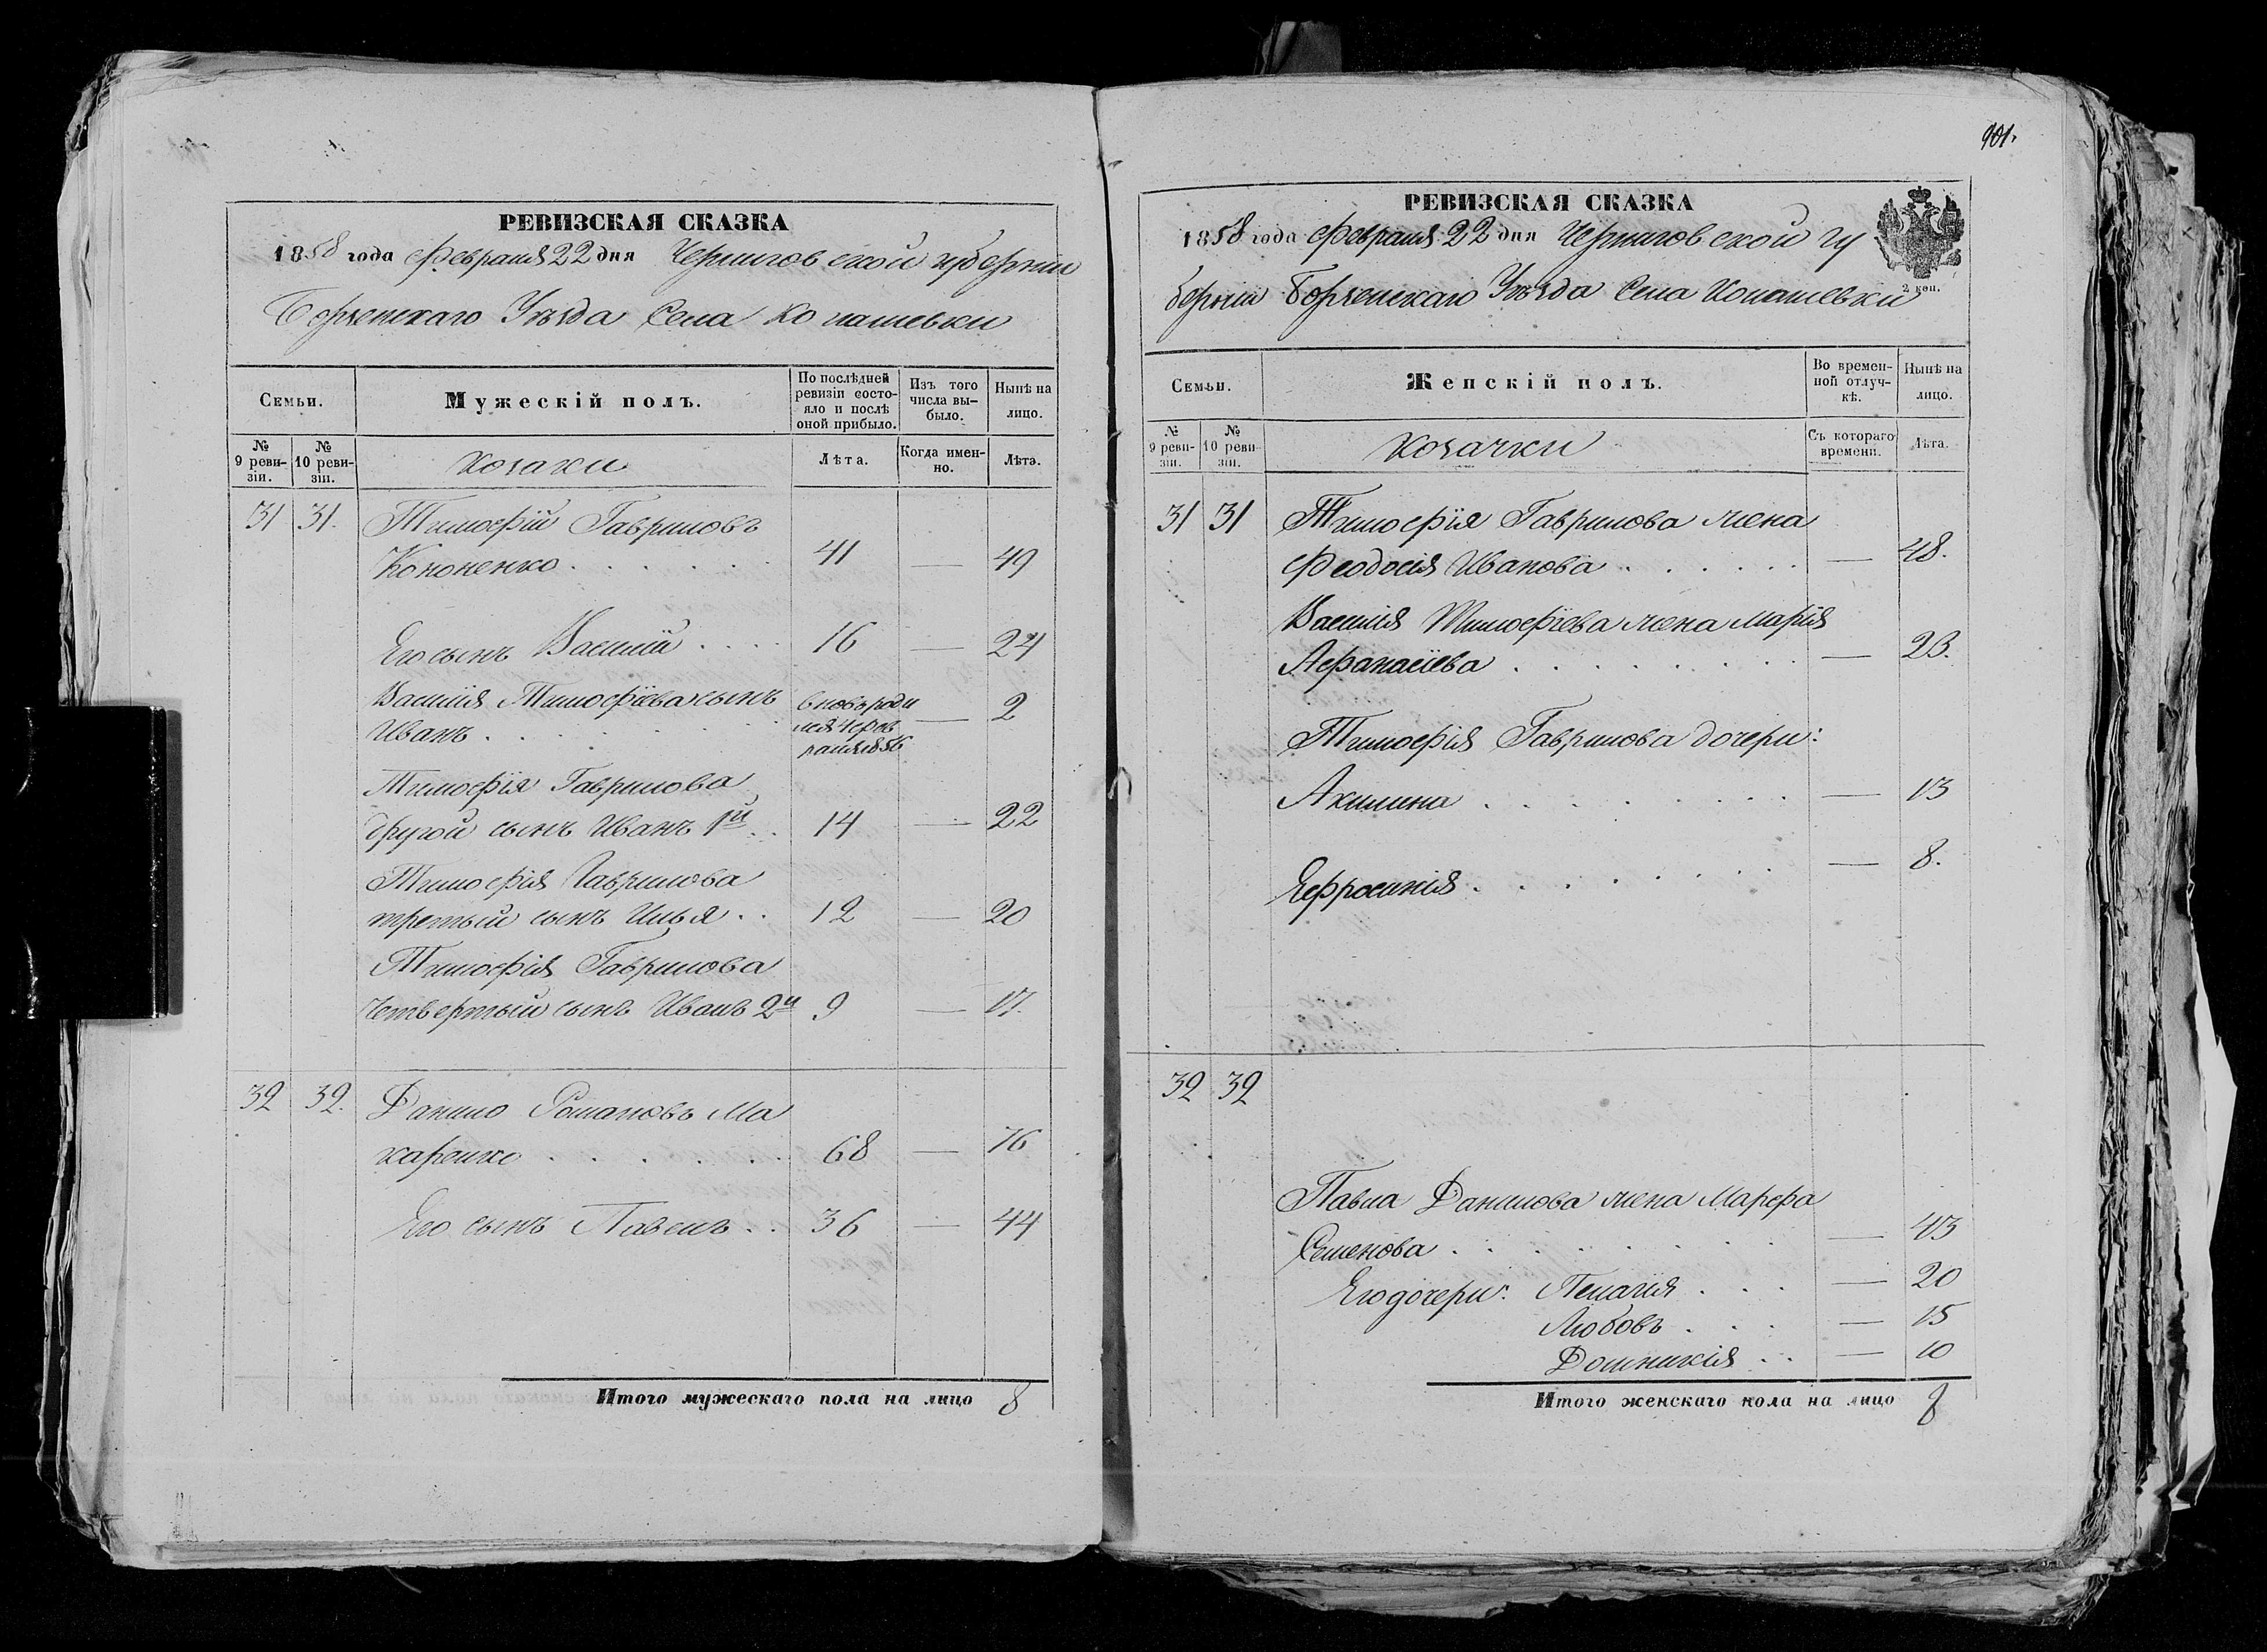 РЕВИЗСКАЯ СКАЗКА
1858 года Февраля 22 дня Черниговской губернии
Борзенскаго Уѣзда Села Кошашевки
Семьи.
Мужескій полъ.
По послѣдней ревизіи состояло и послѣ оной прибыло.
Изъ того числа выбыло.
Нынѣ на лицо.
№ 9 ревизіи.
№ 10 ревизіи.
козаки
Лѣта.
Когда именно.
Лѣта.
31 31. Тимофій Гавриловъ
Кононенко . . . . . . 41 — 49
Его сынъ Василій . . . . 16 — 24
Василія Тимофіева сынъ
Иванъ . . . . . . вновь роди
лся 4 фев
раля 1856 — 2
Тимофія Гаврилова
другой сынъ Иванъ 1й . . 14 — 22
Тимофія Гаврилова
третый сынъ Илья . . 12 — 20
Тимофія Гаврилова
Четвертый сынъ Иванъ 2й 9 — 17.
32 32. Данило Романовъ Ма
каренко . . . . . . 68 — 76
Его сынъ Павелъ . . 36 — 44
Итого мужескаго пола на лицо 8
101.
РЕВИЗСКАЯ СКАЗКА
1858 года Февраля 22 дня Черниговской гу
берніи Борзенскаго Уѣзда Села
2 коп.
Семьи.
Женскій полъ.
Во временной отлучкѣ.
Нынѣ на лицо.
№ 9 ревизіи.
№ 10 ревизіи.
козачки
Съ котораго времени.
Лѣта.
31 31 Тимофія Гаврилова жена
Феодосія Иванова . . . . . . — 48.
Василія Тимофіева жена Марія
Афанасіева . . . . . . . . . — 23.
Тимофія Гаврилова дочери:
Акилина . . . . . . . . . — 13
Ефросинія . . . . . . . . — 8.
32 32
Павла Данилова жена Марфа
Семенова . . . . . . . . — 43
Его дочери: Пелагія . . . — 20
Любовъ . . . — 15
Домникія . . — 10
Итого женскаго пола на лицо 8